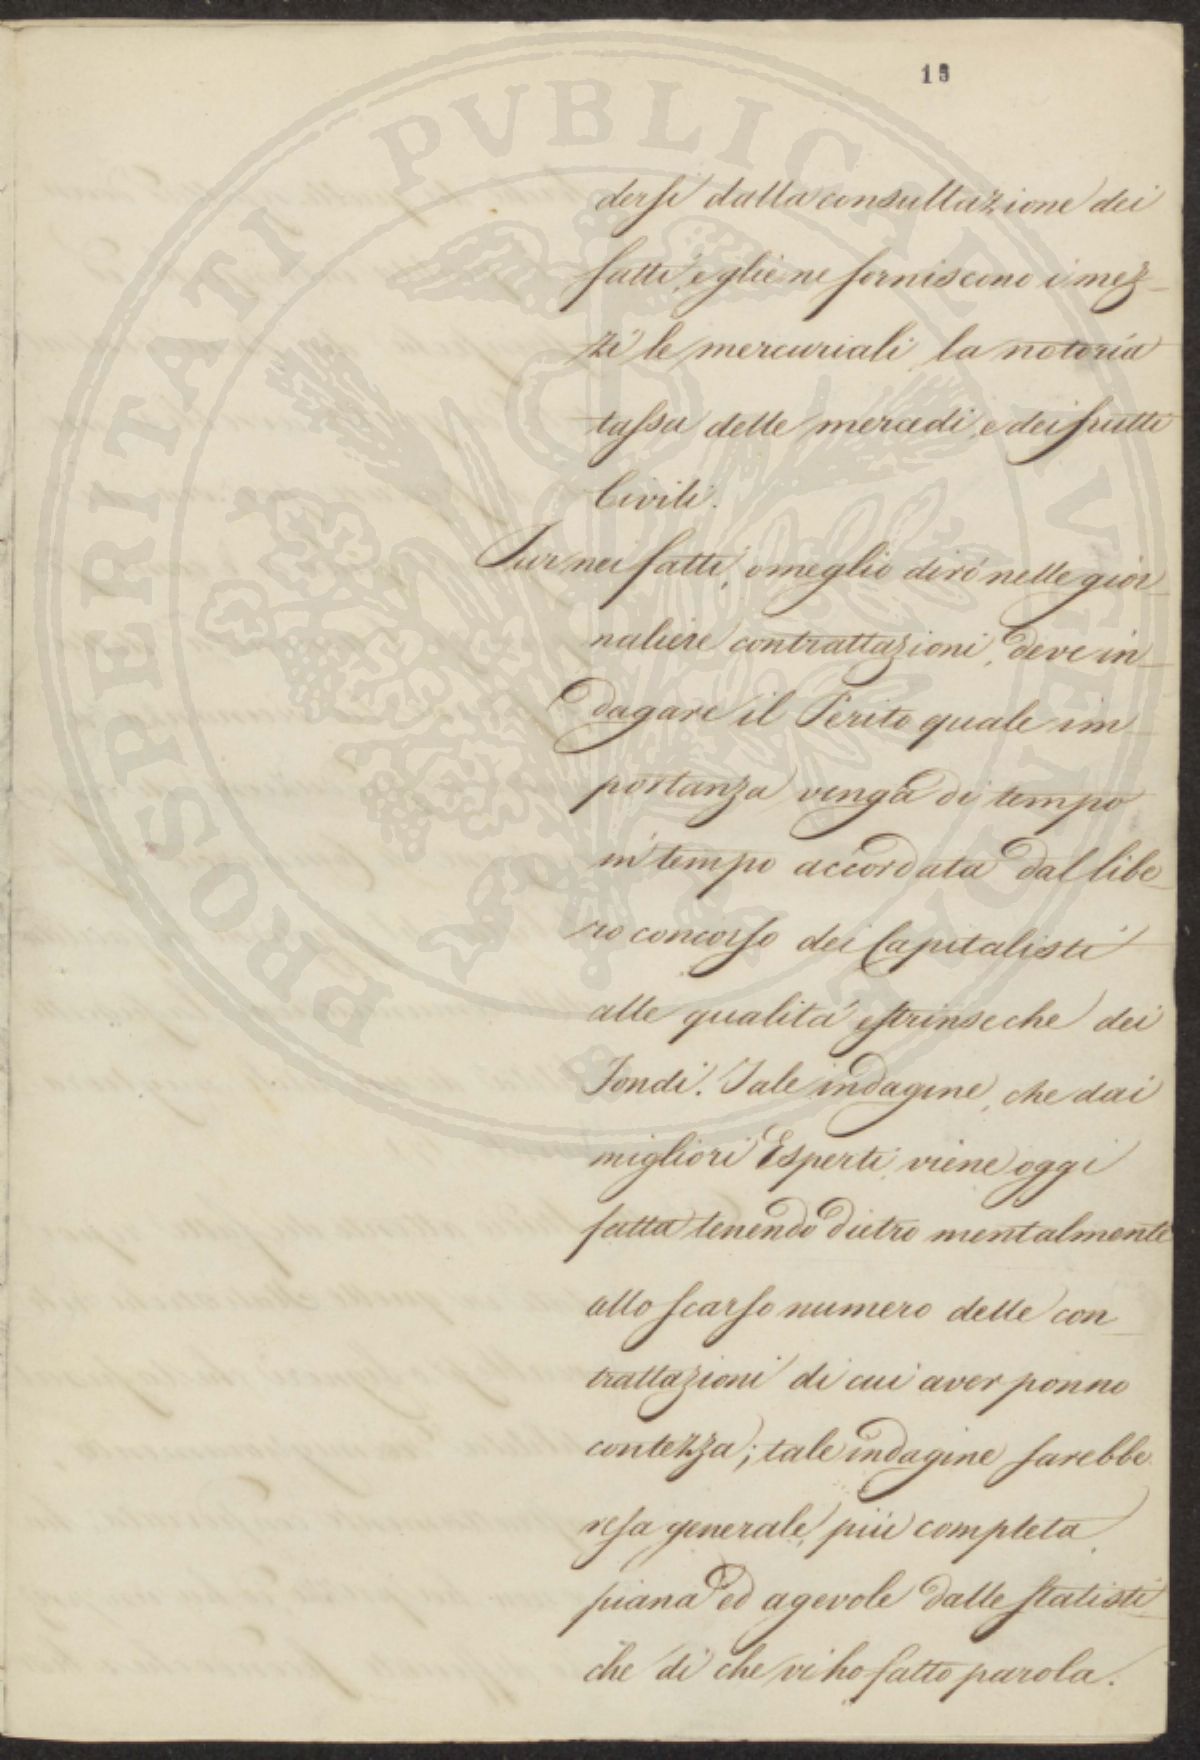 15
dersi dalla consultazione dei
fatti, e gliene forniscono i mez-
zi le mercuriali, la notoria
tassa delle mercedi, e dei frutti
Civili.
Pur nei fatti, o meglio dirò nelle gior-
naliere contrattazioni, deve in-
dagare il Perito quale im-
portanza venga di tempo
in tempo accordata dal libe-
ro concorso dei Capitalisti
alle qualità estrinseche dei
Fondi. Tale indagine, che dai
migliori Esperti viene oggi
fatta tenendo dietro mentalmente
allo scarso numero delle con-
trattazioni di cui aver ponno
contezza; tale indagine sarebbe
resa generale, più completa,
piana ed agevole dalle statisti-
che di che vi ho fatto parola.
PROSPERITATI PVBLICAE AVGENDAE